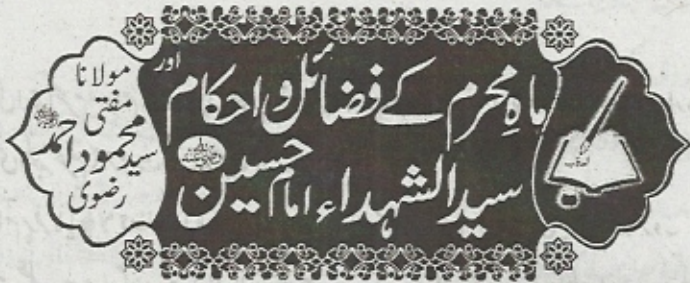 ماہِ محرم کے فضائل و احکام اور
سید الشہداء امام حسین رضی اللہ عنہ
مولانا
مفتی
سید محمود احمد
رضوی